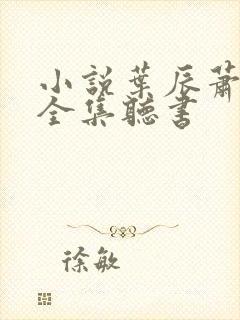 小說葉辰蕭
全集聽書
徐敏